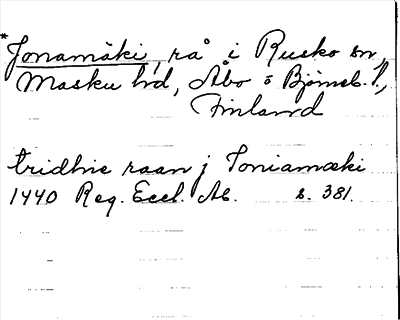 *Jonamäki, rå i Rusko sn,
Masku hd, Åbo o Björneb. l,
Finland
tridhie raan j Joniamæki
1440 Reg. Eccl. Ab. s. 381.